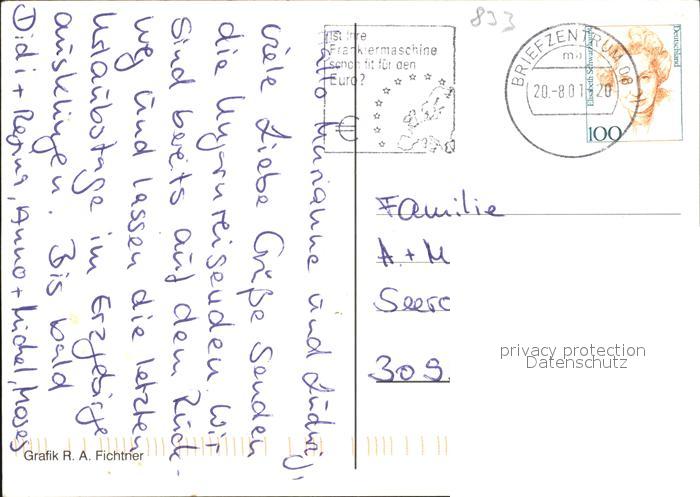 Hallo Marianne und
Viele Liebe Grüße senden
die Ungarnreisenden. Wir
sind bereits auf dem Rück-
weg und lassen die letzten
Urlaubstage im Erzgebirge
ausklingen. Bis bald
Didi + Regina, Anno + Michel, Moses
Grafik R. A. Fichtner
893
Ist Ihre
Frankiermaschine
schon fit für den
Euro?
€
BRIEFZENTRUM 08
mb
20.-8.01-20
Deutschland
Elisabeth Schwarzhaupt
100
Familie
A. + M
Seere
309
privacy protection
Datenschutz